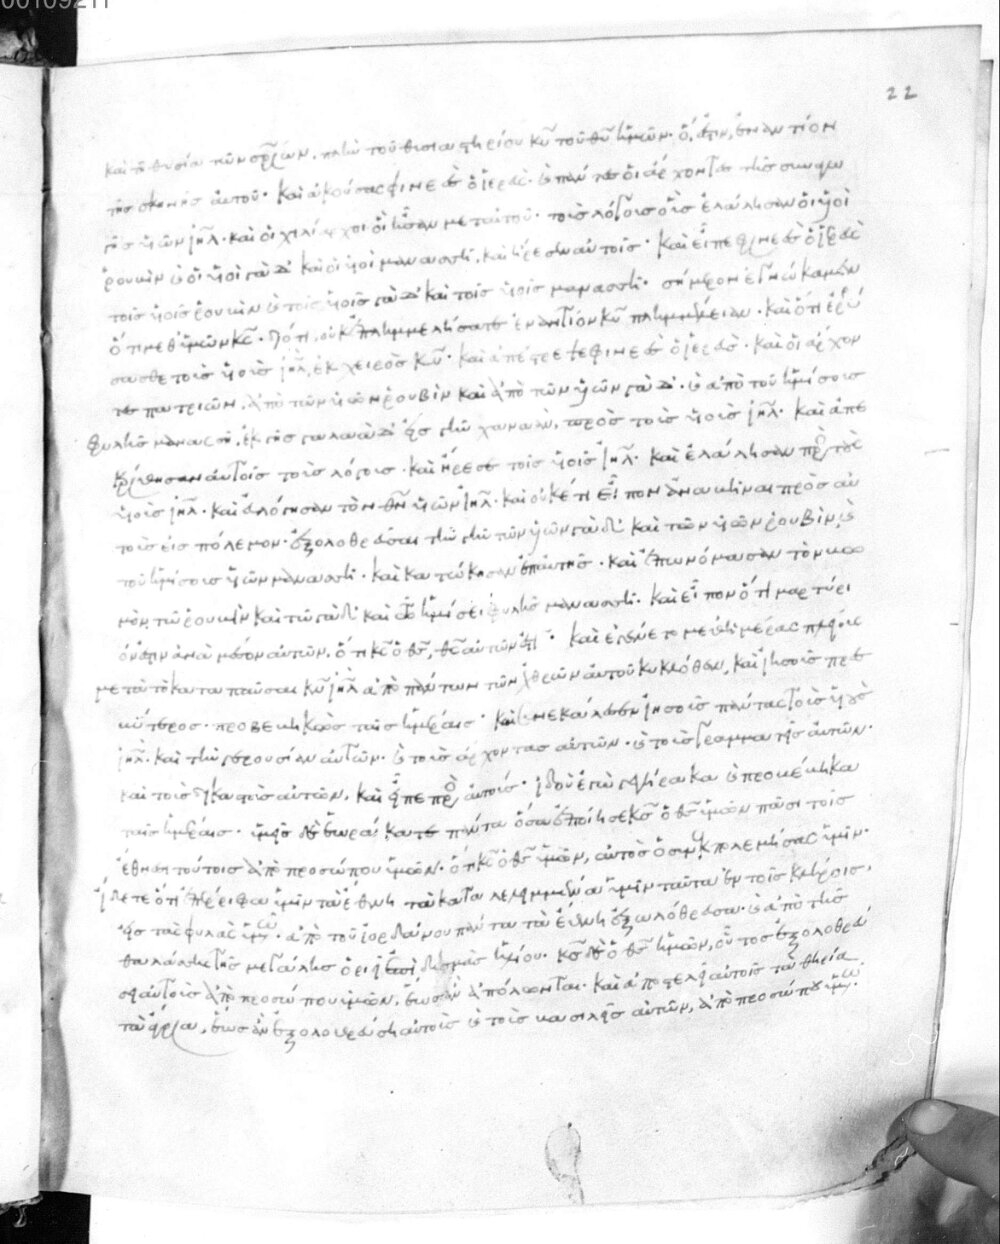 00109211
22
καὶ τὴν θυσίαν τῶν σρίων. πλὴν τοῦ θυσιαστηρίου κυ τοῦ θυ ἡμῶν. ὅ ἐστιν ἐναντίον
τῆς σκηνῆς αὐτοῦ. καὶ ἀκούσας φινεὲς ὁ ἱερεὺς. καὶ πάντες οἱ ἄρχοντες τῆς συναγω
γῆς υἱῶν ιηλ. καὶ οἱ χιλίαρχοι οἱ ἦσαν μετ' αὐτοῦ. τοὺς λόγους οὓς ἐλάλησαν οἱ υἱοὶ
ῥουβὶν καὶ οἱ υἱοὶ γὰδ καὶ οἱ υἱοὶ μανασσῆ, καὶ ἤρεσεν αὐτοῖς. καὶ εἶπε φινεὲς ὁ ἱερεὺς
τοῖς υἱοῖς ῥουβὶν καὶ τοῖς υἱοῖς γὰδ καὶ τοῖς υἱοῖς μανασσῆ. σήμερον ἐγνώκαμεν
ὅτι μεθ' ἡμῶν κς. διότι οὐκ ἐπλημμελήσατε ἐναντίον κυ πλημμέλειαν. καὶ ὅτι ἐρρύ
σασθε τοὺς υἱοὺς ιηλ ἐκ χειρὸς κυ. καὶ ἀπέστρεψε φινεὲς ὁ ἱερεὺς. καὶ οἱ ἄρχον
τες πατριῶν. ἀπὸ τῶν υἱῶν ῥουβὶν καὶ ἀπὸ τῶν υἱῶν γὰδ. καὶ ἀπὸ τοῦ ἡμίσους
φυλῆς μανασσῆ. ἐκ γῆς γαλαὰδ εἰς γῆν χαναὰν, πρὸς τοὺς υἱοὺς ιηλ. καὶ ἀπε
κρίθησαν αὐτοῖς τοὺς λόγους. καὶ ἤρεσε τοῖς υἱοῖς ιηλ. καὶ ἐλάλησαν πρὸς τοὺς
υἱοὺς ιηλ. καὶ εὐλόγησαν τὸν θν υἱῶν ιηλ. καὶ οὐκέτι εἶπον ἀναβῆναι πρὸς αὐ
τοὺς εἰς πόλεμον. ἐξολοθρεῦσαι τὴν γῆν τῶν υἱῶν γὰδ καὶ τῶν υἱῶν ῥουβὶν, καὶ
τοῦ ἡμίσους υἱῶν μανασσῆ. καὶ κατώκησαν ἐπ' αὐτῆς. καὶ ἐπωνόμασαν τὸν βω
μὸν, τῶ ῥουβὶν καὶ τῶ γὰδ καὶ τῶ ἡμίσει φυλῆς μανασσῆ. καὶ εἶπον ὅτι μαρτύρι
όν ἐστιν ἀνὰ μέσον αὐτῶν. ὅτι κς ὁ θς, θς αὐτῶν ἐστι. καὶ ἐγένετο μεθ' ἡμέρας πλείους
μετὰ τὸ καταπαῦσαι κν ιηλ ἀπὸ πάντων τῶν ἐχθρῶν αὐτοῦ κυκλόθεν, καὶ ἰησοῦς πρεσ
βύτερος. προβεβηκὼς ταῖς ἡμέραις. καὶ συνεκάλεσεν ἰησοῦς πάντας τοὺς υἱοὺς
ιηλ. καὶ τὴν γερουσίαν αὐτῶν. καὶ τοὺς ἄρχοντας αὐτῶν. καὶ τοὺς γραμματεῖς αὐτῶν.
καὶ τοὺς δικαστὰς αὐτῶν, καὶ εἶπε πρὸς αὐτούς. ἰδοὺ ἐγὼ γεγήρακα καὶ προβέβηκα
ταῖς ἡμέραις. ὑμεῖς δὲ ἑωράκατε πάντα ὅσα ἐποίησε κς ὁ θς ὑμῶν πᾶσι τοῖς
ἔθνεσι τούτοις ἀπὸ προσώπου ὑμῶν. ὅτι κς ὁ θς ὑμῶν, αὐτὸς ὁ συνεκπολεμήσας ὑμῖν.
ἴδετε ὅτι ἐπέριφα ὑμῖν τὰ ἔθνη τὰ καταλελειμμένα ὑμῖν ταῦτα ἐν τοῖς κλήροις,
εἰς τὰς φυλὰς ὑμῶν. ἀπὸ τοῦ ἰορδάνου πάντα τὰ ἔθνη ἐξωλόθρευσα. καὶ ἀπὸ τῆς
θαλάσσης τῆς μεγάλης ὁριεῖ ἐπὶ δυσμὰς ἡλίου. κς δὲ ὁ θς ἡμῶν, οὗτος ἐξολοθρεύ
σει αὐτοὺς ἀπὸ προσώπου ὑμῶν, ἕως ἂν ἀπόλωνται. καὶ ἀποστελεῖ αὐτοῖς τὰ θηρία
τὰ ἄγρια, ἕως ἂν ἐξολοθρεύση αὐτοὺς καὶ τοὺς βασιλεῖς αὐτῶν, ἀπὸ προσώπου ὑμῶν.